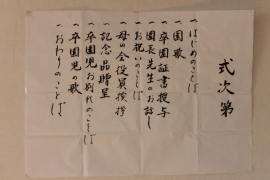 式次第
一はじめのことば
一国歌
一卒園証書授与
一園長先生のお話し
一お祝いのことば
一母の会役員挨拶
一記念品贈呈
一卒園児お別れのことば
一卒園児の歌
一おわりのことば